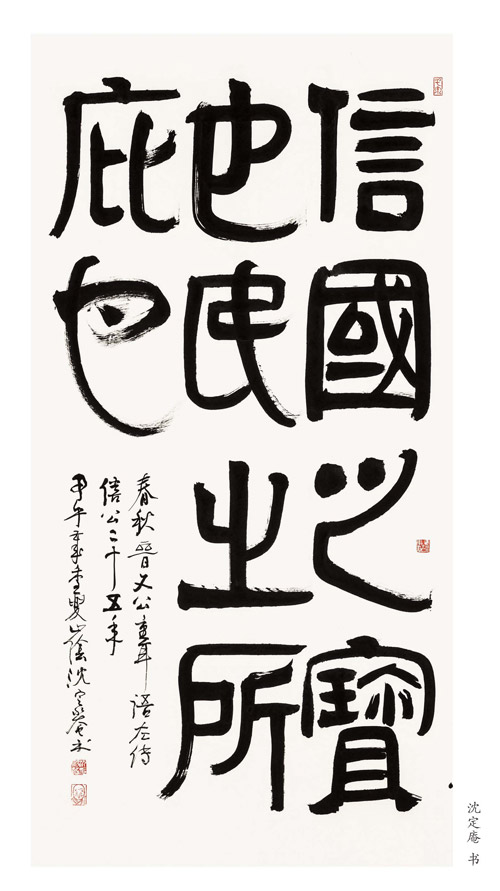 信國之寶
也民之所
庇也
春秋晉文公重耳語左傳
僖公二十五年
甲午
山陰沈定庵書
沈定庵 书